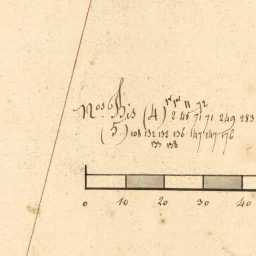 Nos 6 his (4) 2 48 71 71 249 283
(5) 108 132 132 136 147 147 176
133 138
0 10 20 30 40